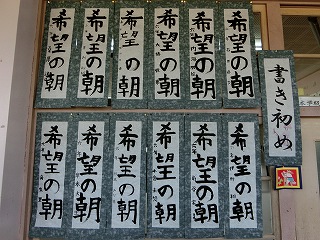 希望の朝
希望の朝
希望の朝
希望の朝
希望の朝
希望の朝
書き初め
希望の朝
希望の朝
希望の朝
希望の朝
希望の朝
希望の朝